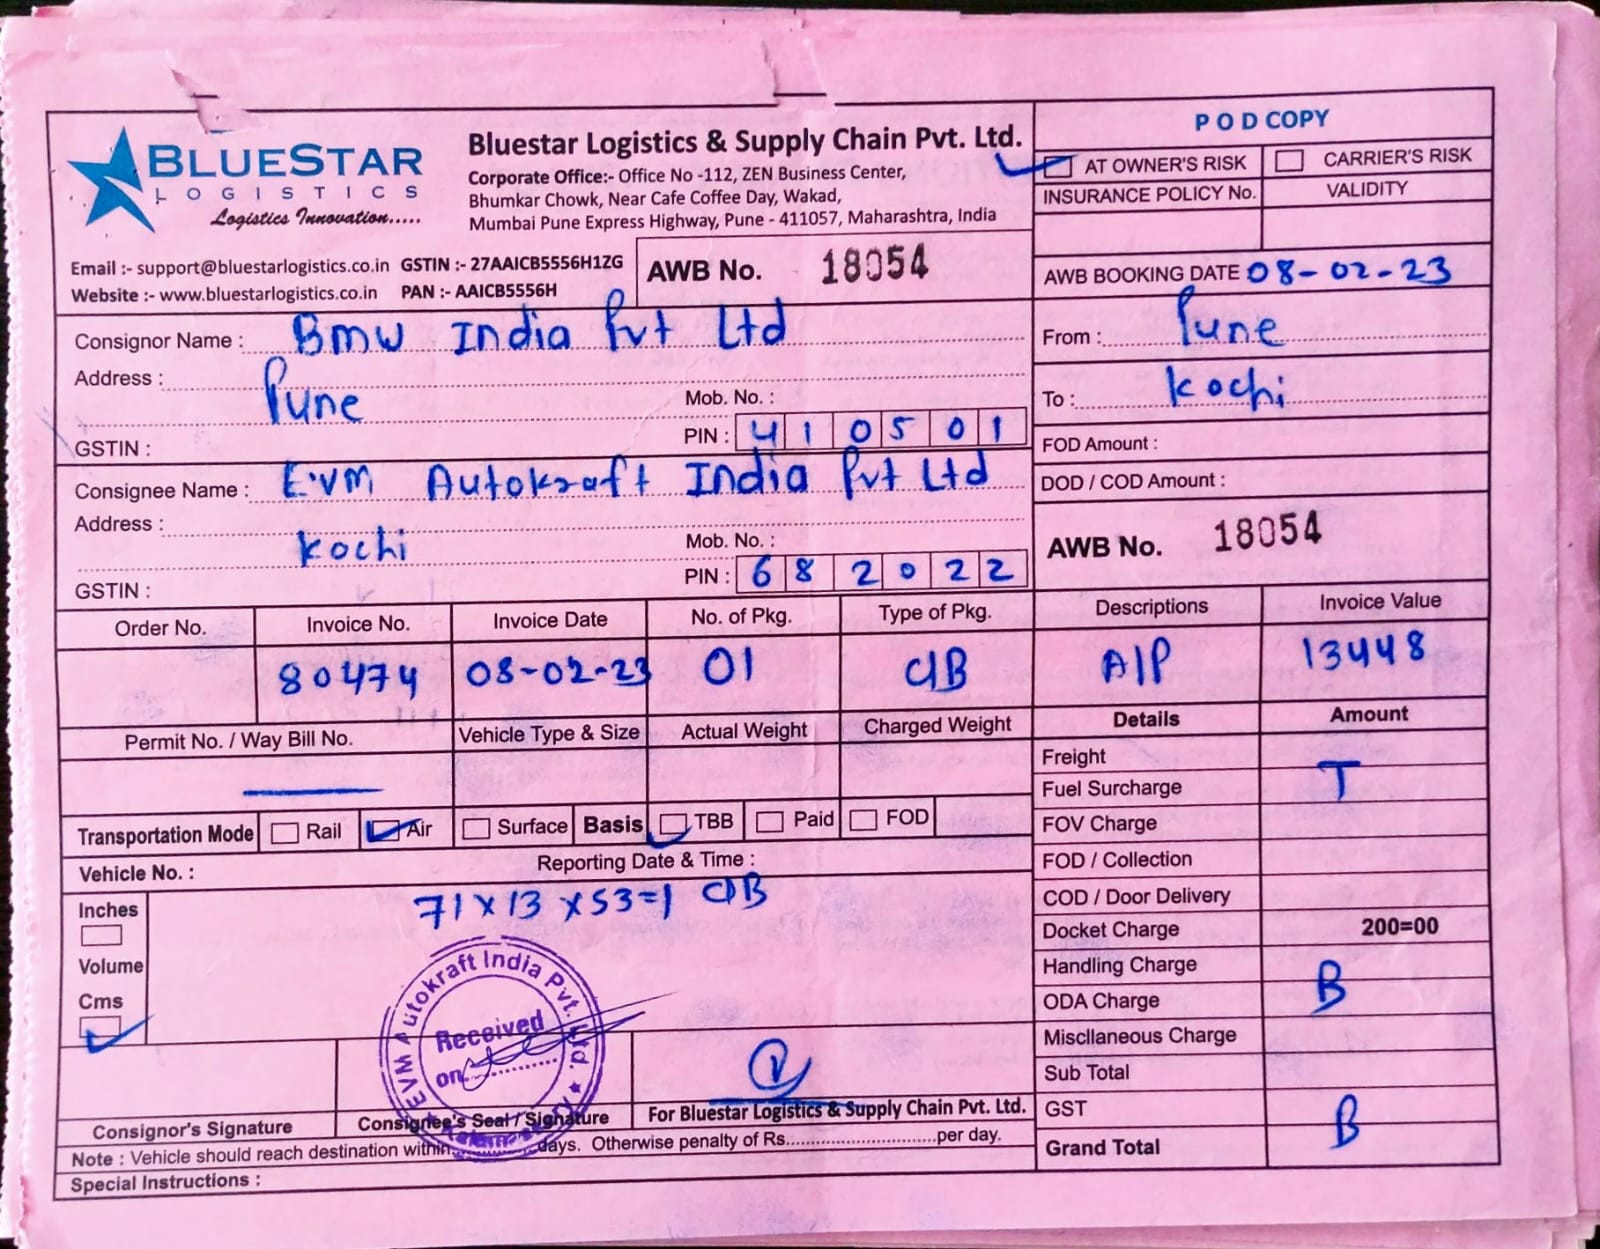 POD COPY
BLUESTAR
LOGISTICS
Logistics Innovation.....
Bluestar Logistics & Supply Chain Pvt. Ltd.
Corporate Office:- Office No -112, ZEN Business Center,
Bhumkar Chowk, Near Cafe Coffee Day, Wakad,
Mumbai Pune Express Highway, Pune - 411057, Maharashtra, India
AT OWNER'S RISK CARRIER'S RISK
INSURANCE POLICY No. VALIDITY
Email :- support@bluestarlogistics.co.in GSTIN :- 27AAICB5556H1ZG
Website :- www.bluestarlogistics.co.in PAN :- AAICB5556H
AWB No. 18054
AWB BOOKING DATE 08-02-23
Consignor Name : BMW India Pvt Ltd
Address : Pune
Mob. No. :
GSTIN :
PIN : 410501
From : Pune
To : Kochi
FOD Amount :
DOD / COD Amount :
Consignee Name : E.VM Autokraft India Pvt Ltd
Address : Kochi
Mob. No. :
GSTIN :
PIN : 682022
AWB No. 18054
Order No. Invoice No. Invoice Date No. of Pkg. Type of Pkg. Descriptions Invoice Value
80474 08-02-23 01 C/B A/P 13448
Permit No. / Way Bill No. Vehicle Type & Size Actual Weight Charged Weight Details Amount
Freight
Fuel Surcharge T
FOV Charge
FOD / Collection
COD / Door Delivery
Docket Charge 200=00
Handling Charge
ODA Charge B
Miscllaneous Charge
Sub Total
GST B
Grand Total
Transportation Mode Rail Air Surface Basis TBB Paid FOD
Vehicle No. : Reporting Date & Time :
71x13x53=1 C/B
Inches
Volume
Cms
EVM Autokraft India Pvt. Ltd.
Received
on
Consignor's Signature Consignee's Seal / Signature For Bluestar Logistics & Supply Chain Pvt. Ltd.
Note : Vehicle should reach destination within days. Otherwise penalty of Rs..............................per day.
Special Instructions :